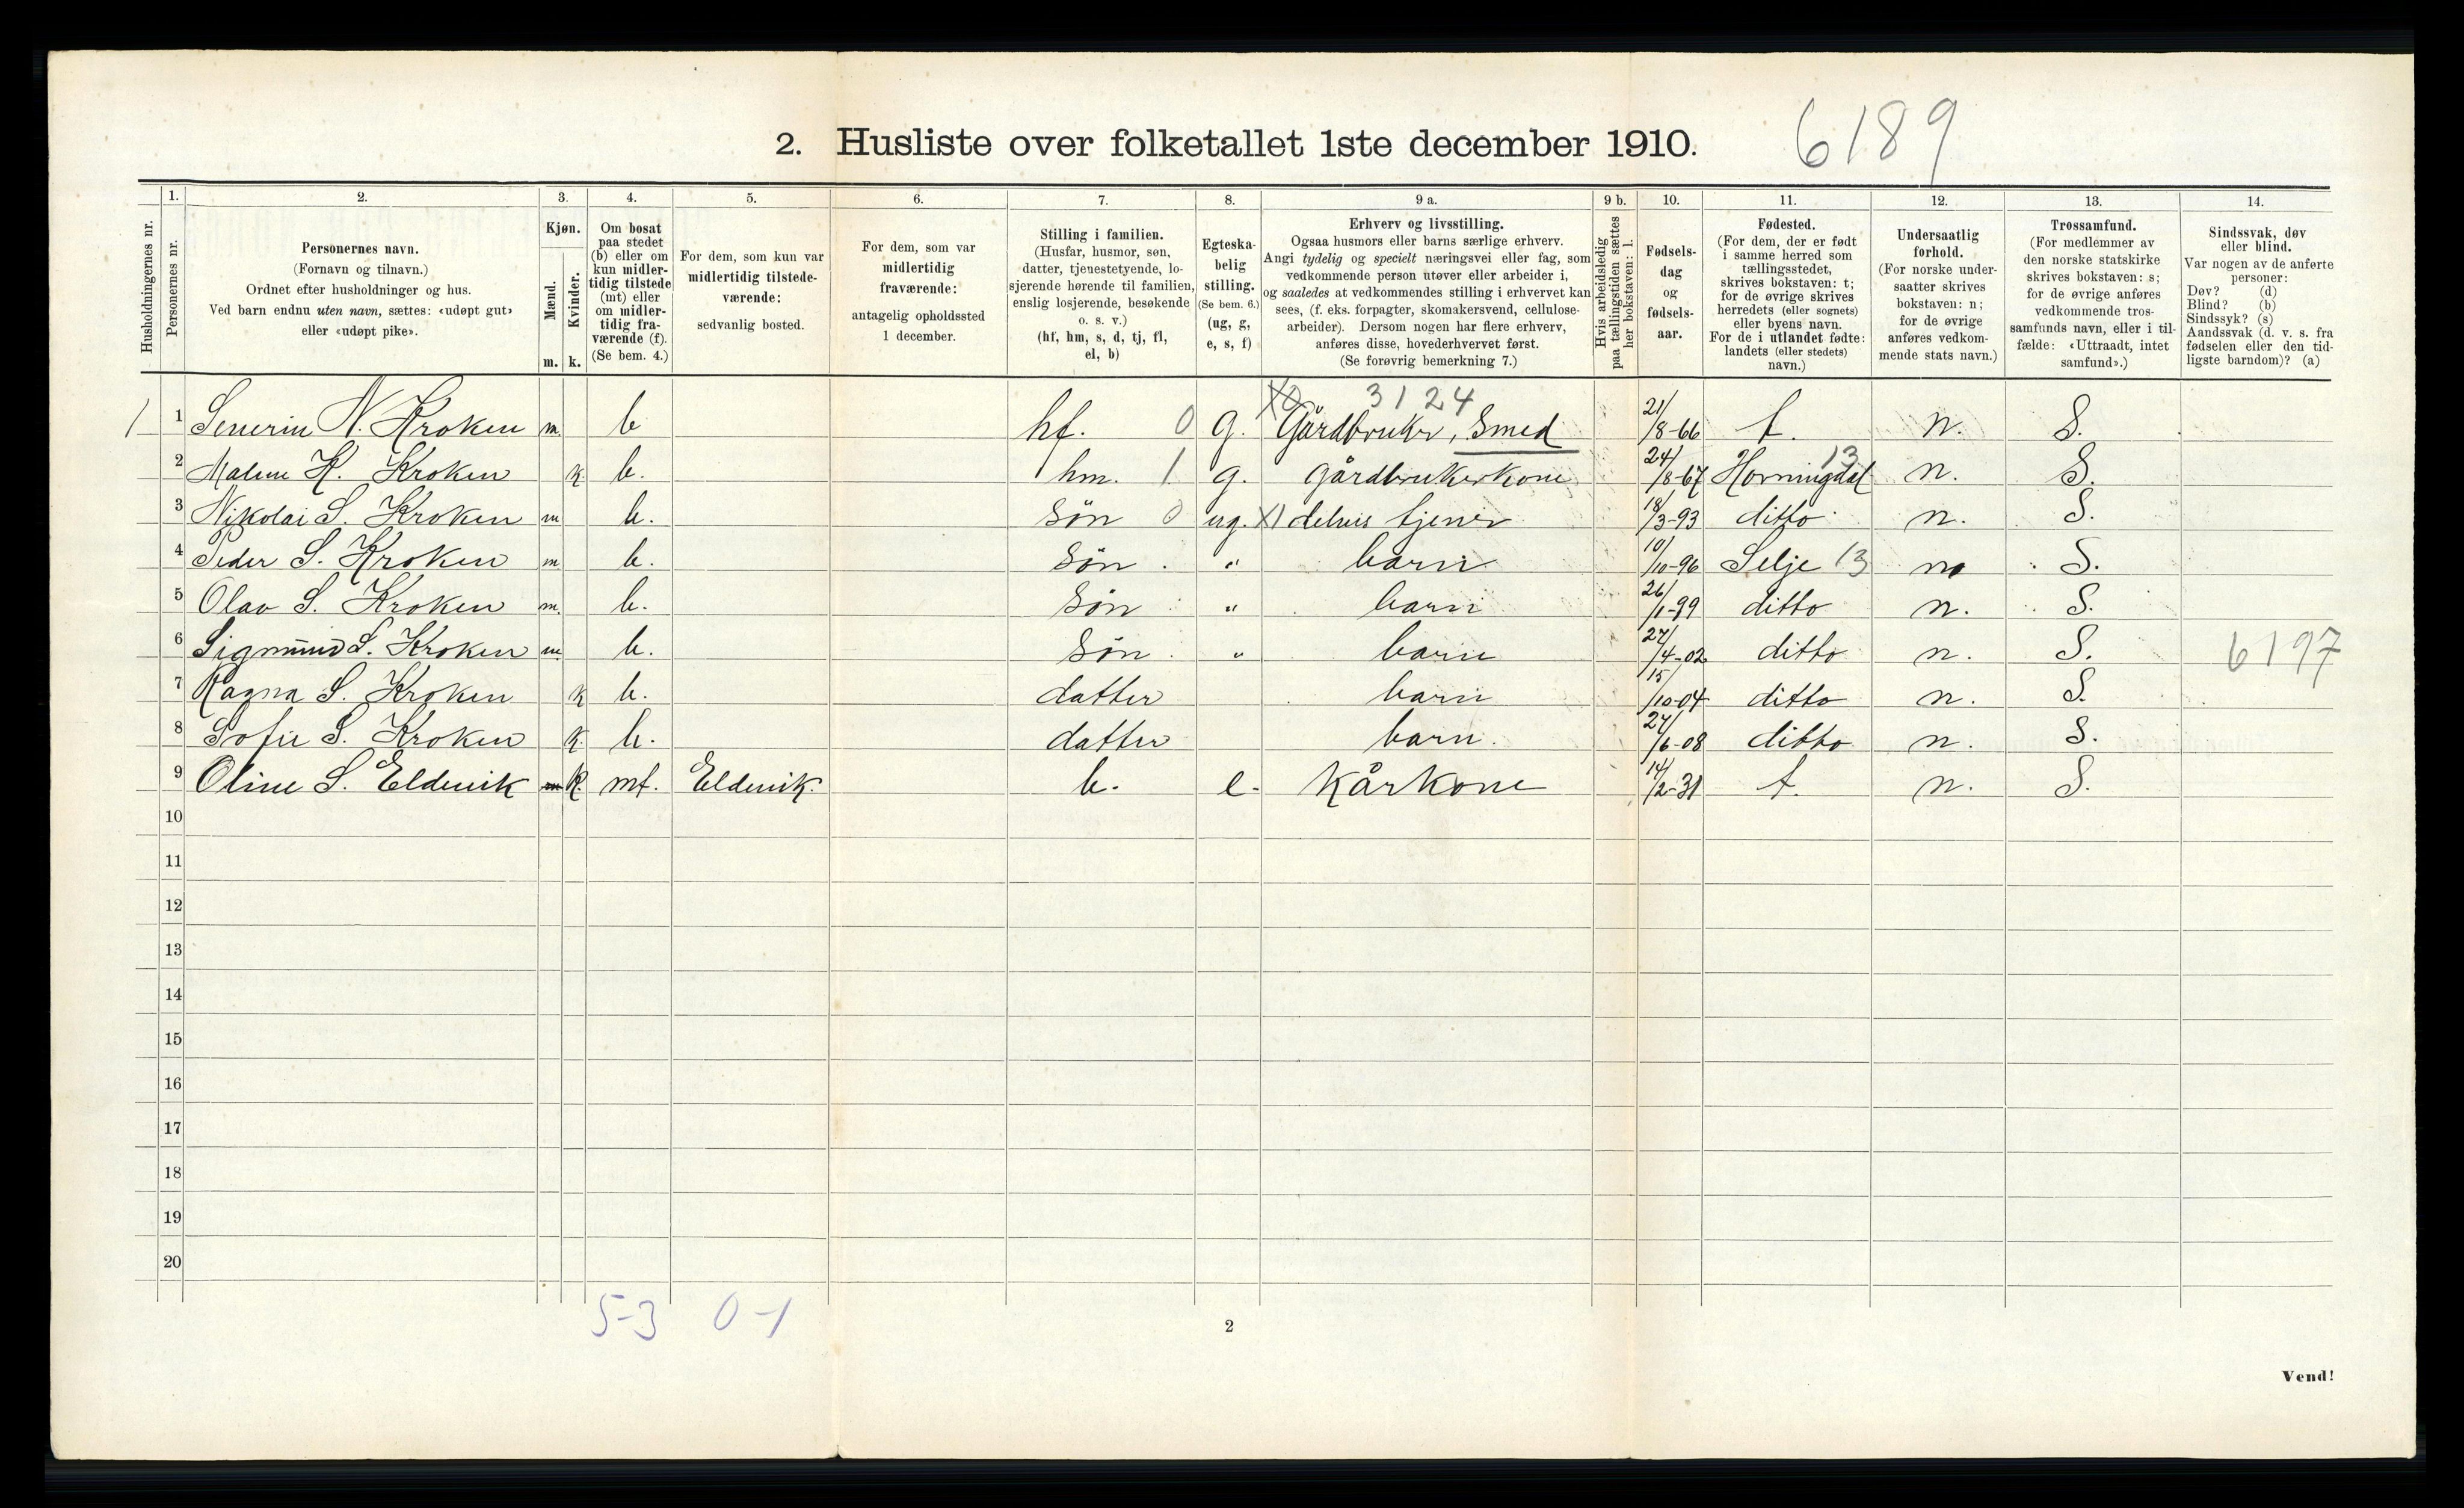 2. Husliste over folketallet 1ste december 1910.
6189
Husholdningernes nr.
1.
Personernes nr.
2.
Personernes navn.
(Fornavn og tilnavn.)
Ordnet efter husholdninger og hus.
Ved barn endnu uten navn, sættes: «udøpt gut»
eller «udøpt pike».
3.
Kjøn.
Mænd.
Kvinder.
m. k.
4.
Om bosat
paa stedet
(b) eller om
kun midler-
tidig tilstede
(mt) eller
om midler-
tidig fra-
værende (f).
(Se bem. 4.)
5.
For dem, som kun var
midlertidig tilstede-
værende:
sedvanlig bosted.
6.
For dem, som var
midlertidig
fraværende:
antagelig opholdssted
1 december.
7.
Stilling i familien.
(Husfar, husmor, søn,
datter, tjenestetyende, lo-
sjerende hørende til familien,
enslig losjerende, besøkende
o. s. v.)
(hf, hm, s, d, tj, fl,
el, b)
8.
Egteska-
belig
stilling.
(Se bem. 6.)
(ug, g,
e, s, f)
9 a.
Erhverv og livsstilling.
Ogsaa husmors eller barns særlige erhverv.
Angi tydelig og specielt næringsvei eller fag, som
vedkommende person utøver eller arbeider i,
og saaledes at vedkommendes stilling i erhvervet kan
sees, (f. eks. forpagter, skomakersvend, cellulose-
arbeider). Dersom nogen har flere erhverv,
anføres disse, hovederhvervet først.
(Se forøvrig bemerkning 7.)
9 b.
Hvis arbeidsledig
paa tællingstiden sættes
her bokstaven: l.
10.
Fødsels-
dag
og
fødsels-
aar.
11.
Fødested.
(For dem, der er født
i samme herred som
tællingsstedet,
skrives bokstaven: t;
for de øvrige skrives
herredets (eller sognets)
eller byens navn.
For de i utlandet fødte:
landets (eller stedets)
navn.)
12.
Undersaatlig
forhold.
(For norske under-
saatter skrives
bokstaven: n;
for de øvrige
anføres vedkom-
mende stats navn.)
13.
Trossamfund.
(For medlemmer av
den norske statskirke
skrives bokstaven: s;
for de øvrige anføres
vedkommende tros-
samfunds navn, eller i til-
fælde: «Uttraadt, intet
samfund».)
14.
Sindssvak, døv
eller blind.
Var nogen av de anførte
personer:
Døv? (d)
Blind? (b)
Sindssyk? (s)
Aandssvak (d. v. s. fra
fødselen eller den tid-
ligste barndom)? (a)
X0 3124
1 1 Severin N. Kroken m. b hf. 0 g. Gårdbruker, Smed 21/8-66 t. n. S.
2 Malene H. Kroken k. b. hm. 1 g. gårdbrukerkone 24/8-67 Horningdal 13 n. S.
3 Nikolai S. Kroken m b. Sön 0 ug. X1 delvis tjener 18/3-93 ditto n. S.
4 Peder S. Kroken m b. Sön " barn 10/10-96 Selje 13 n S.
5 Olav S. Kroken m. b. Sön " barn 26/1-99 ditto n. S.
6 Sigmund S. Kroken m. b. Sön " barn 27/4-02 ditto n. S. 6197
7 Ragna S. Kroken k b. datter barn 15/10-04 ditto n. S.
8 Sofie S. Kroken k. b. datter barn. 27/6-08 ditto n. S.
9 Oline S. Eldevik k. mt. Eldevik. b. e. Kårkone 14/2-31 t. n. S.
10
11
12
13
14
15
16
17
18
19
20
5-3 0-1
2
Vend!